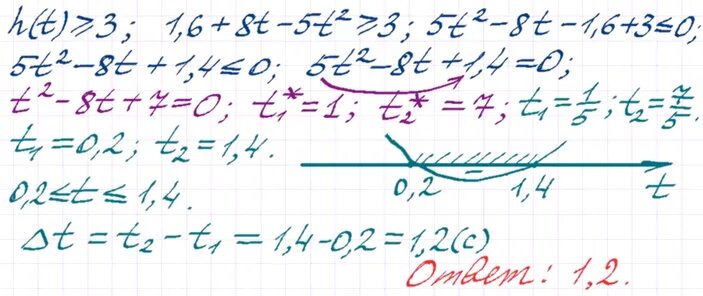 h(t)≥3; 1,6+8t-5t²≥3; 5t²-8t-1,6+3≤0;
5t²-8t+1,4≤0; 5t²-8t+1,4=0;
t²-8t+7=0; t₁*=1; t₂*=7; t₁=1/5; t₂=7/5.
t₁=0,2; t₂=1,4.
0,2 1,4 t
0,2≤t≤1,4.
Δt=t₂-t₁=1,4-0,2=1,2(с)
Ответ: 1,2.